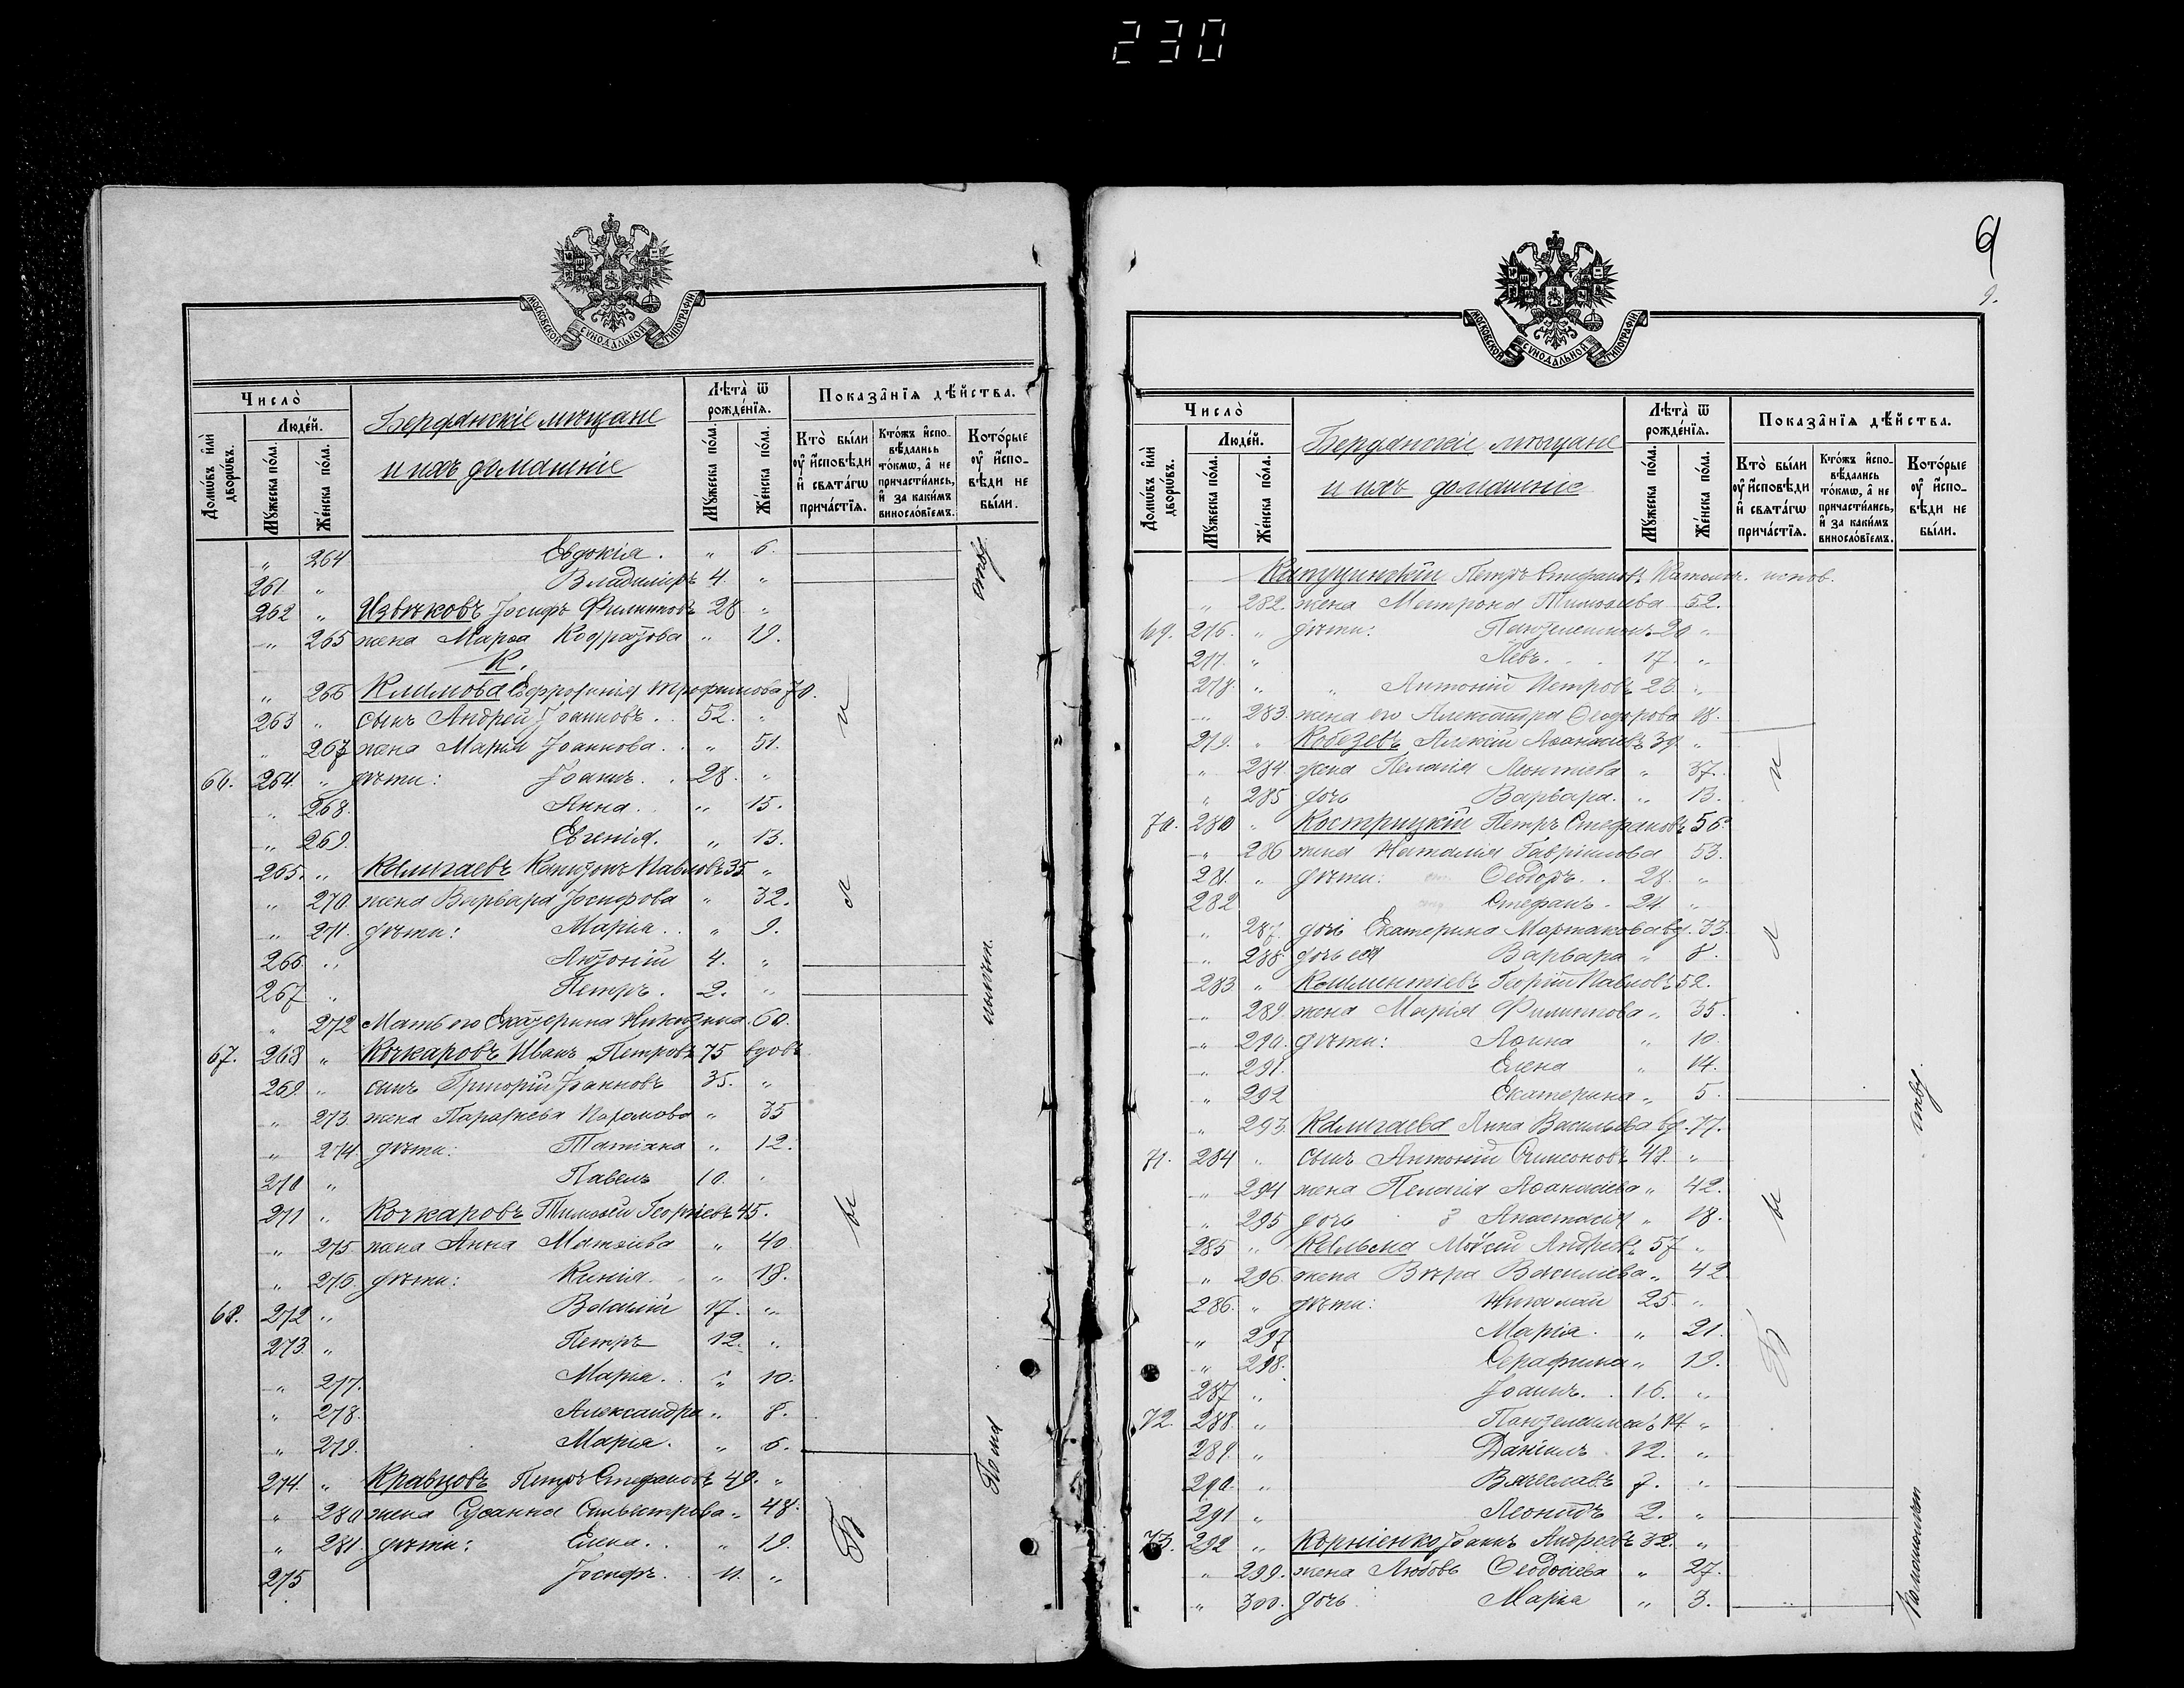 230
МОСКОВСКОЙ СУНОДАЛЬНОЙ ТИПОГРАФІИ
Число̀
Людей.
Домѡвъ и҆лѝ дворѡвъ.
Мꙋжеска пола.
Женска пола.
Бердянскіе мѣщане
и ихъ домашніе
Лѣта̀ ѿ рожденїѧ.
Мꙋжеска пола.
Женска пола.
Показанїѧ дѣйства.
Кто̀ были ᲂу҆ и҆сповѣди и҆ свѧтагѡ причастїѧ.
Ктожъ и҆сповѣдались токмѡ, а҆ не причастились, и҆ за какимъ винословїемъ.
Которые ᲂу҆ и҆сповѣди не были.
„ 264 Евдокія. „ 6.
261 „ Владиміръ 4. „
262 „ Извѣковъ Іосифъ Филиповъ 28 „
„ 265 жена Марѳа 19.
К.
„ 266 Климова Евфросинія Трофимова 70.
263 „ сынъ Андрей Іоанновъ. 52. „
„ 267 жена Марія Іоаннова. „ 51.
66. 264. „ дѣти: Іоаннъ. 28. „
„ 268. Анна. „ 15.
„ 269. Евгенія. „ 13.
265. „ Калмгаевъ Капитонъ Павловъ 35 „
„ 270. жена Варвара Іосифова „ 32.
„ 271. дѣти: Марія. „ 9.
266 „ Антоній 4. „
267 „ Петръ. 2. „
„ 272 Мать его Екатерина Никитина. 60.
67. 268 „ Кочкаровъ Иванъ Петровъ 75 вдовъ
269. „ сынъ Григорій Іоанновъ 35. „
„ 273. жена Параскева „ 35
„ 274 дѣти: Татіана „ 12.
270 „ Павелъ 10. „
271 „ Кочкаровъ Тимоѳей Георгіевъ 45.
„ 275 жена Анна Матѳіева „ 40
„ 276. дѣти: Ксенія. „ 18.
68. 272 „ Василій 17. „
273. „ Петръ 12. „
„ 277. Марія. „ 10.
„ 278. Александра „ 8.
„ 279. Марія. „ 6.
274. „ Кравцовъ Петръ Стефановъ 49. „
„ 280 жена Сусанна Сильвестрова „ 48.
„ 281. дѣти: Елена. „ 19.
275 Іосифъ. 11. „
и
л
ы
Б
По мал
9.
МОСКОВСКОЙ СУНОДАЛЬНОЙ ТИПОГРАФІИ
Число̀
Людей.
Домѡвъ и҆лѝ дворѡвъ.
Мꙋжеска пола.
Женска пола.
Бердянскіе мѣщане
и ихъ домашніе
Лѣта̀ ѿ рожденїѧ.
Мꙋжеска пола.
Женска пола.
Показанїѧ дѣйства.
Кто̀ были ᲂу҆ и҆сповѣди и҆ свѧтагѡ причастїѧ.
Ктожъ и҆сповѣдались токмѡ, а҆ не причастились, и҆ за какимъ винословїемъ.
Которые ᲂу҆ и҆сповѣди не были.
Петръ Стефановъ Католич. испов.
„ 282. жена Матрона Тимоѳеева 52.
69. 276. „ дѣти: Пантелеимонъ 20 „
277. „ Левъ. 17. „
278. „ „ Антоній Петровъ 23. „
„ 283. жена его Александра Ѳеодорова 18.
279. „ Кобезевъ Алексій Аѳанасіевъ 39. „
„ 284. жена Пелагія Леонтіева „ 37.
„ 285 дочь Варвара. „ 13.
70. 280 „ Кострицкій Петръ Стефановъ 56.
„ 286 жена Наталія Гавріилова 53.
281. „ дѣти: Ѳеодоръ. 28. „
282 Стефанъ. 24 „
„ 287. дочь Екатерина Мартакова вд. 33.
„ 288. дочь ея Варвара „ 8.
283 „ Климентіевъ Георгій Павловъ 52.
„ 289. жена Марія Филиппова „ 35.
„ 290. дѣти: „ 10.
„ 291. Елена „ 14.
„ 292 Екатерина „ 5.
„ 293. Калмгаева Анна Васильева вд. 77.
71. 284 „ сынъ Антоній Симеоновъ 48. „
„ 294 жена Пелагія Аѳанасіева „ 42.
„ 295 дочь Анастасія „ 18.
285 „ Моѵсей Андреевъ 57 „
„ 296. жена Вѣра Василіева „ 42
286. „ дѣти: Николай 25. „
„ 297 Марія. „ 21.
„ 298. Серафима „ 19.
287 „ Іоаннъ. 16. „
72. 288. „ Пантелеимонъ 14. „
289. „ Даніилъ 12. „
290. „ Вячеславъ 7. „
291 „ Леонидъ 2. „
73. 292 „ Корніенко Іоаннъ Андреевъ 32. „
„ 299. жена Любовь Ѳеодосіева „ 27.
„ 300. дочь Марія „ 3.
и
л
ы
Б